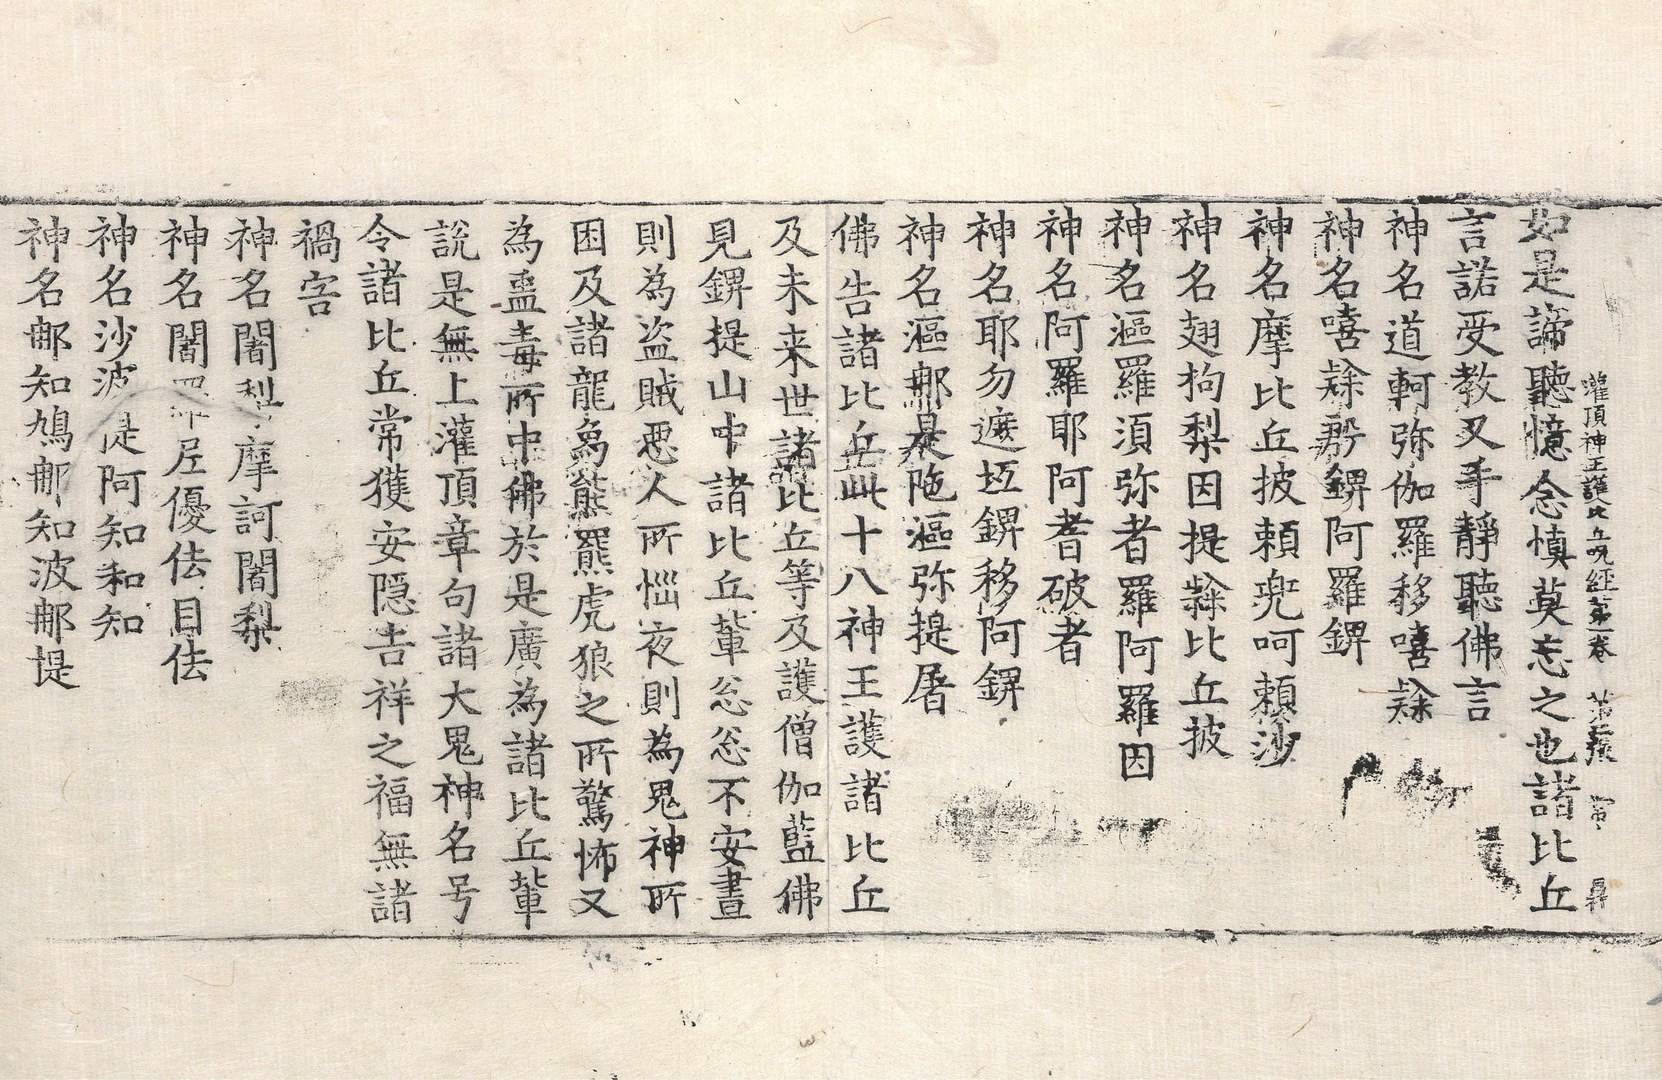 灌頂神王護比丘呪經第一卷 第五張 㝉 昇
如是諦聽憶念慎莫忘之也諸比丘
言諾受教叉手靜聽佛言
神名道軻弥伽羅移嘻隸
神名嘻隸𨛦錍阿羅錍
神名摩比丘披賴兜呵賴沙
神名翅拘梨因提隸比丘披
神名漚羅須弥者羅阿羅因
神名阿羅耶阿耆破者
神名耶勿遮坻錍移阿錍
神名漚那是陁漚弥提屠
佛告諸比丘此十八神王護諸比丘
及未来世諸比丘等及護僧伽藍佛
見錍提山中諸比丘輩忩忩不安晝
則為盗賊惡人所惱夜則為鬼神所
困及諸龍象熊羆虎狼之所驚怖又
為蠱毒所中佛於是廣為諸比丘輩
說是無上灌頂章句諸大鬼神名号
令諸比丘常獲安隱吉祥之福無諸
禍害
神名闍梨摩訶闍梨
神名闍 尼優佉目佉
神名沙波提阿知和知
神名那知鳩那知波那提